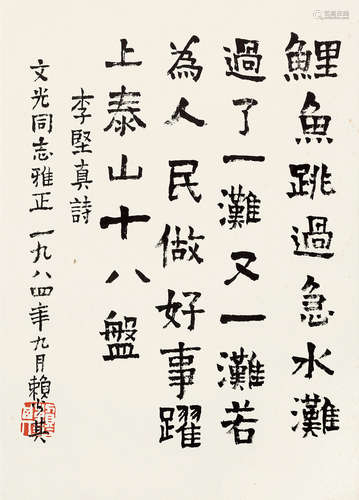 鯉魚跳過急水灘
過了一灘又一灘若
為人民做好事躍
上泰山十八盤
李堅真詩
文光同志雅正一九八四年九月賴少其